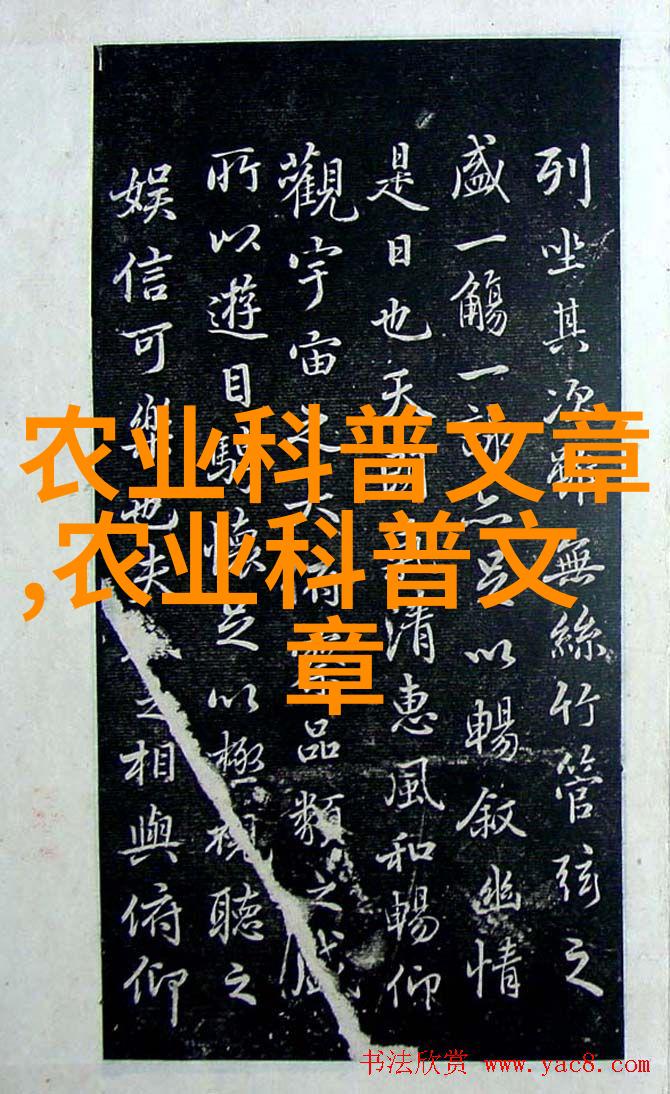 列坐其次雖無絲竹管弦之
盛一觴一詠亦足以暢叙幽情
是日也天朗氣清惠風和暢仰
觀宇宙之大俯品類之盛
所以遊目騁懷足以極視聽之
娱信可樂也夫之相與俯仰
农业科普文章
,农业科普文
章
书法欣赏 www.yac8.com